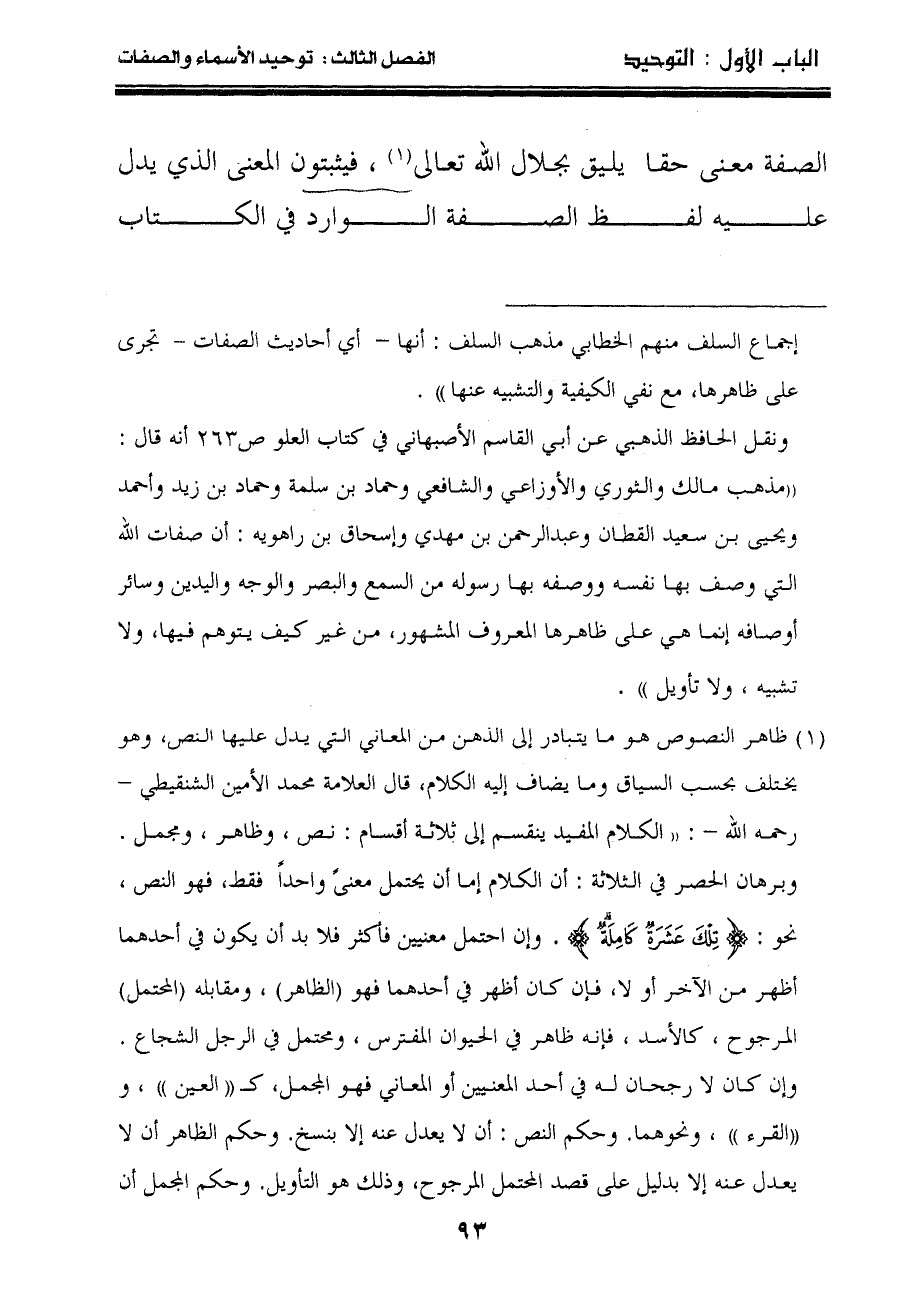 الباب الأول : التوحيد الفصل الثالث: توحيد الأسماء والصفات
الصفة معنى حقا يليق بجلال الله تعالى(١) ، فيثبتون المعنى الذي يدل
عليه لفظ الصفة الوارد في الكتاب
إجماع السلف منهم الخطابي مذهب السلف : أنها – أي أحاديث الصفات – تجرى
على ظاهرها، مع نفي الكيفية والتشبيه عنها )) .
ونقل الحافظ الذهبي عن أبي القاسم الأصبهاني في كتاب العلو ص٢٦٣ أنه قال :
((مذهب مالك والثوري والأوزاعي والشافعي وحماد بن سلمة وحماد بن زيد وأحمد
ويحيى بن سعيد القطان وعبدالرحمن بن مهدي وإسحاق بن راهويه : أن صفات الله
التي وصف بها نفسه ووصفه بها رسوله من السمع والبصر والوجه واليدين وسائر
أوصافه إنما هي على ظاهرها المعروف المشهور، من غير كيف يتوهم فيها، ولا
تشبيه ، ولا تأويل )) .
(١) ظاهر النصوص هو ما يتبادر إلى الذهن من المعاني التي يدل عليها النص، وهو
يختلف بحسب السياق وما يضاف إليه الكلام، قال العلامة محمد الأمين الشنقيطي –
رحمه الله – : (( الكلام المفيد ينقسم إلى ثلاثة أقسام : نص ، وظاهر ، ومجمل .
وبرهان الحصر في الثلاثة : أن الكلام إما أن يحتمل معنىً واحداً فقط، فهو النص ،
نحو : ﴿ تِلْكَ عَشَرَةٌ كَامِلَةٌ ﴾ . وإن احتمل معنيين فأكثر فلا بد أن يكون في أحدهما
أظهر من الآخر أو لا، فإن كان أظهر في أحدهما فهو (الظاهر) ، ومقابله (المحتمل)
المرجوح ، كالأسد ، فإنه ظاهر في الحيوان المفترس ، ومحتمل في الرجل الشجاع .
وإن كان لا رجحان له في أحد المعنيين أو المعاني فهو المجمل، كـ (( العين )) ، و
((القرء )) ، ونحوهما. وحكم النص : أن لا يعدل عنه إلا بنسخ. وحكم الظاهر أن لا
يعدل عنه إلا بدليل على قصد المحتمل المرجوح، وذلك هو التأويل. وحكم المجمل أن
٩٣